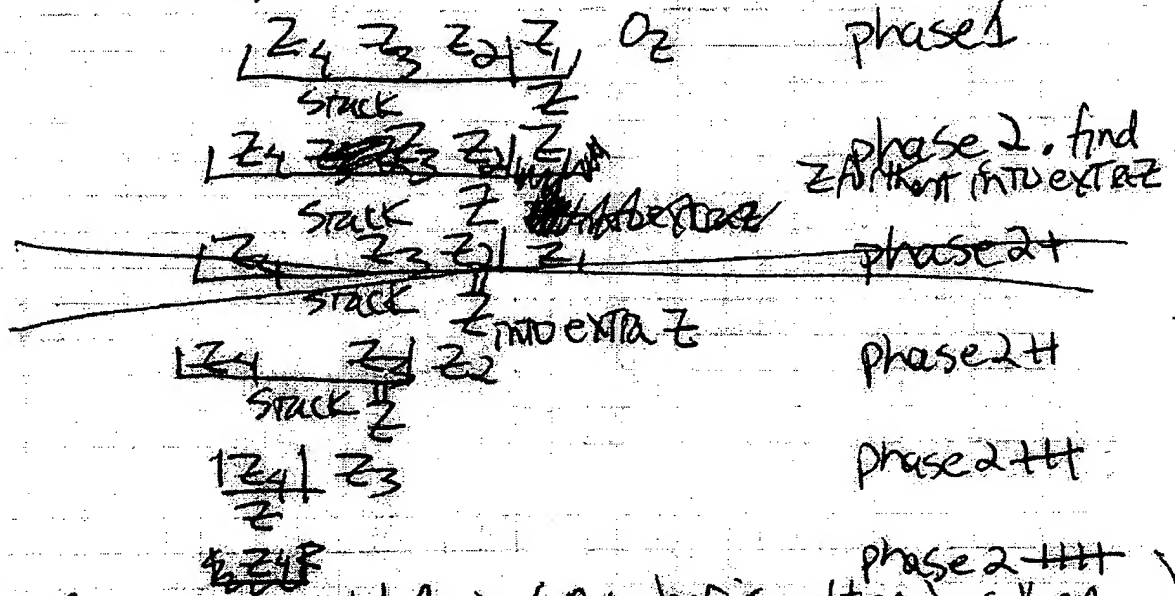 Z4 Z3 Z2 | Z1 Oz phase 1
Stack Z
Z4 Z3 Z2 | Z1 phase 2. find
Stack Z into extra Z
Z4 Z3 Z2 | Z1 phase 2+
Stack Z
into extra Z
Z4 Z3 | Z2 phase 2++
Stack Z
Z4 | Z3 phase 2+++
Z
Z4 phase 2++++